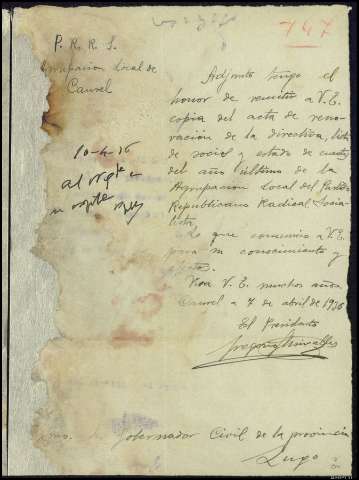 147
P. R. R. S.
Agrupacion Local de
Caurel
10-4-36
Adjunto tengo el
honor de remitir a V. E.
copia del acta de reno-
vación de la directiva, lista
de socios y estado de cuentas
del año último de la
Agrupacion Local del Partido
Republicano Radical Socia-
lista,
Lo que comunico a V. E.
para su conocimiento y
efectos.
Viva V. E. muchos años
Caurel a 7 de abril de 1936
El Presidente
Gobernador Civil de la provincia
Lugo